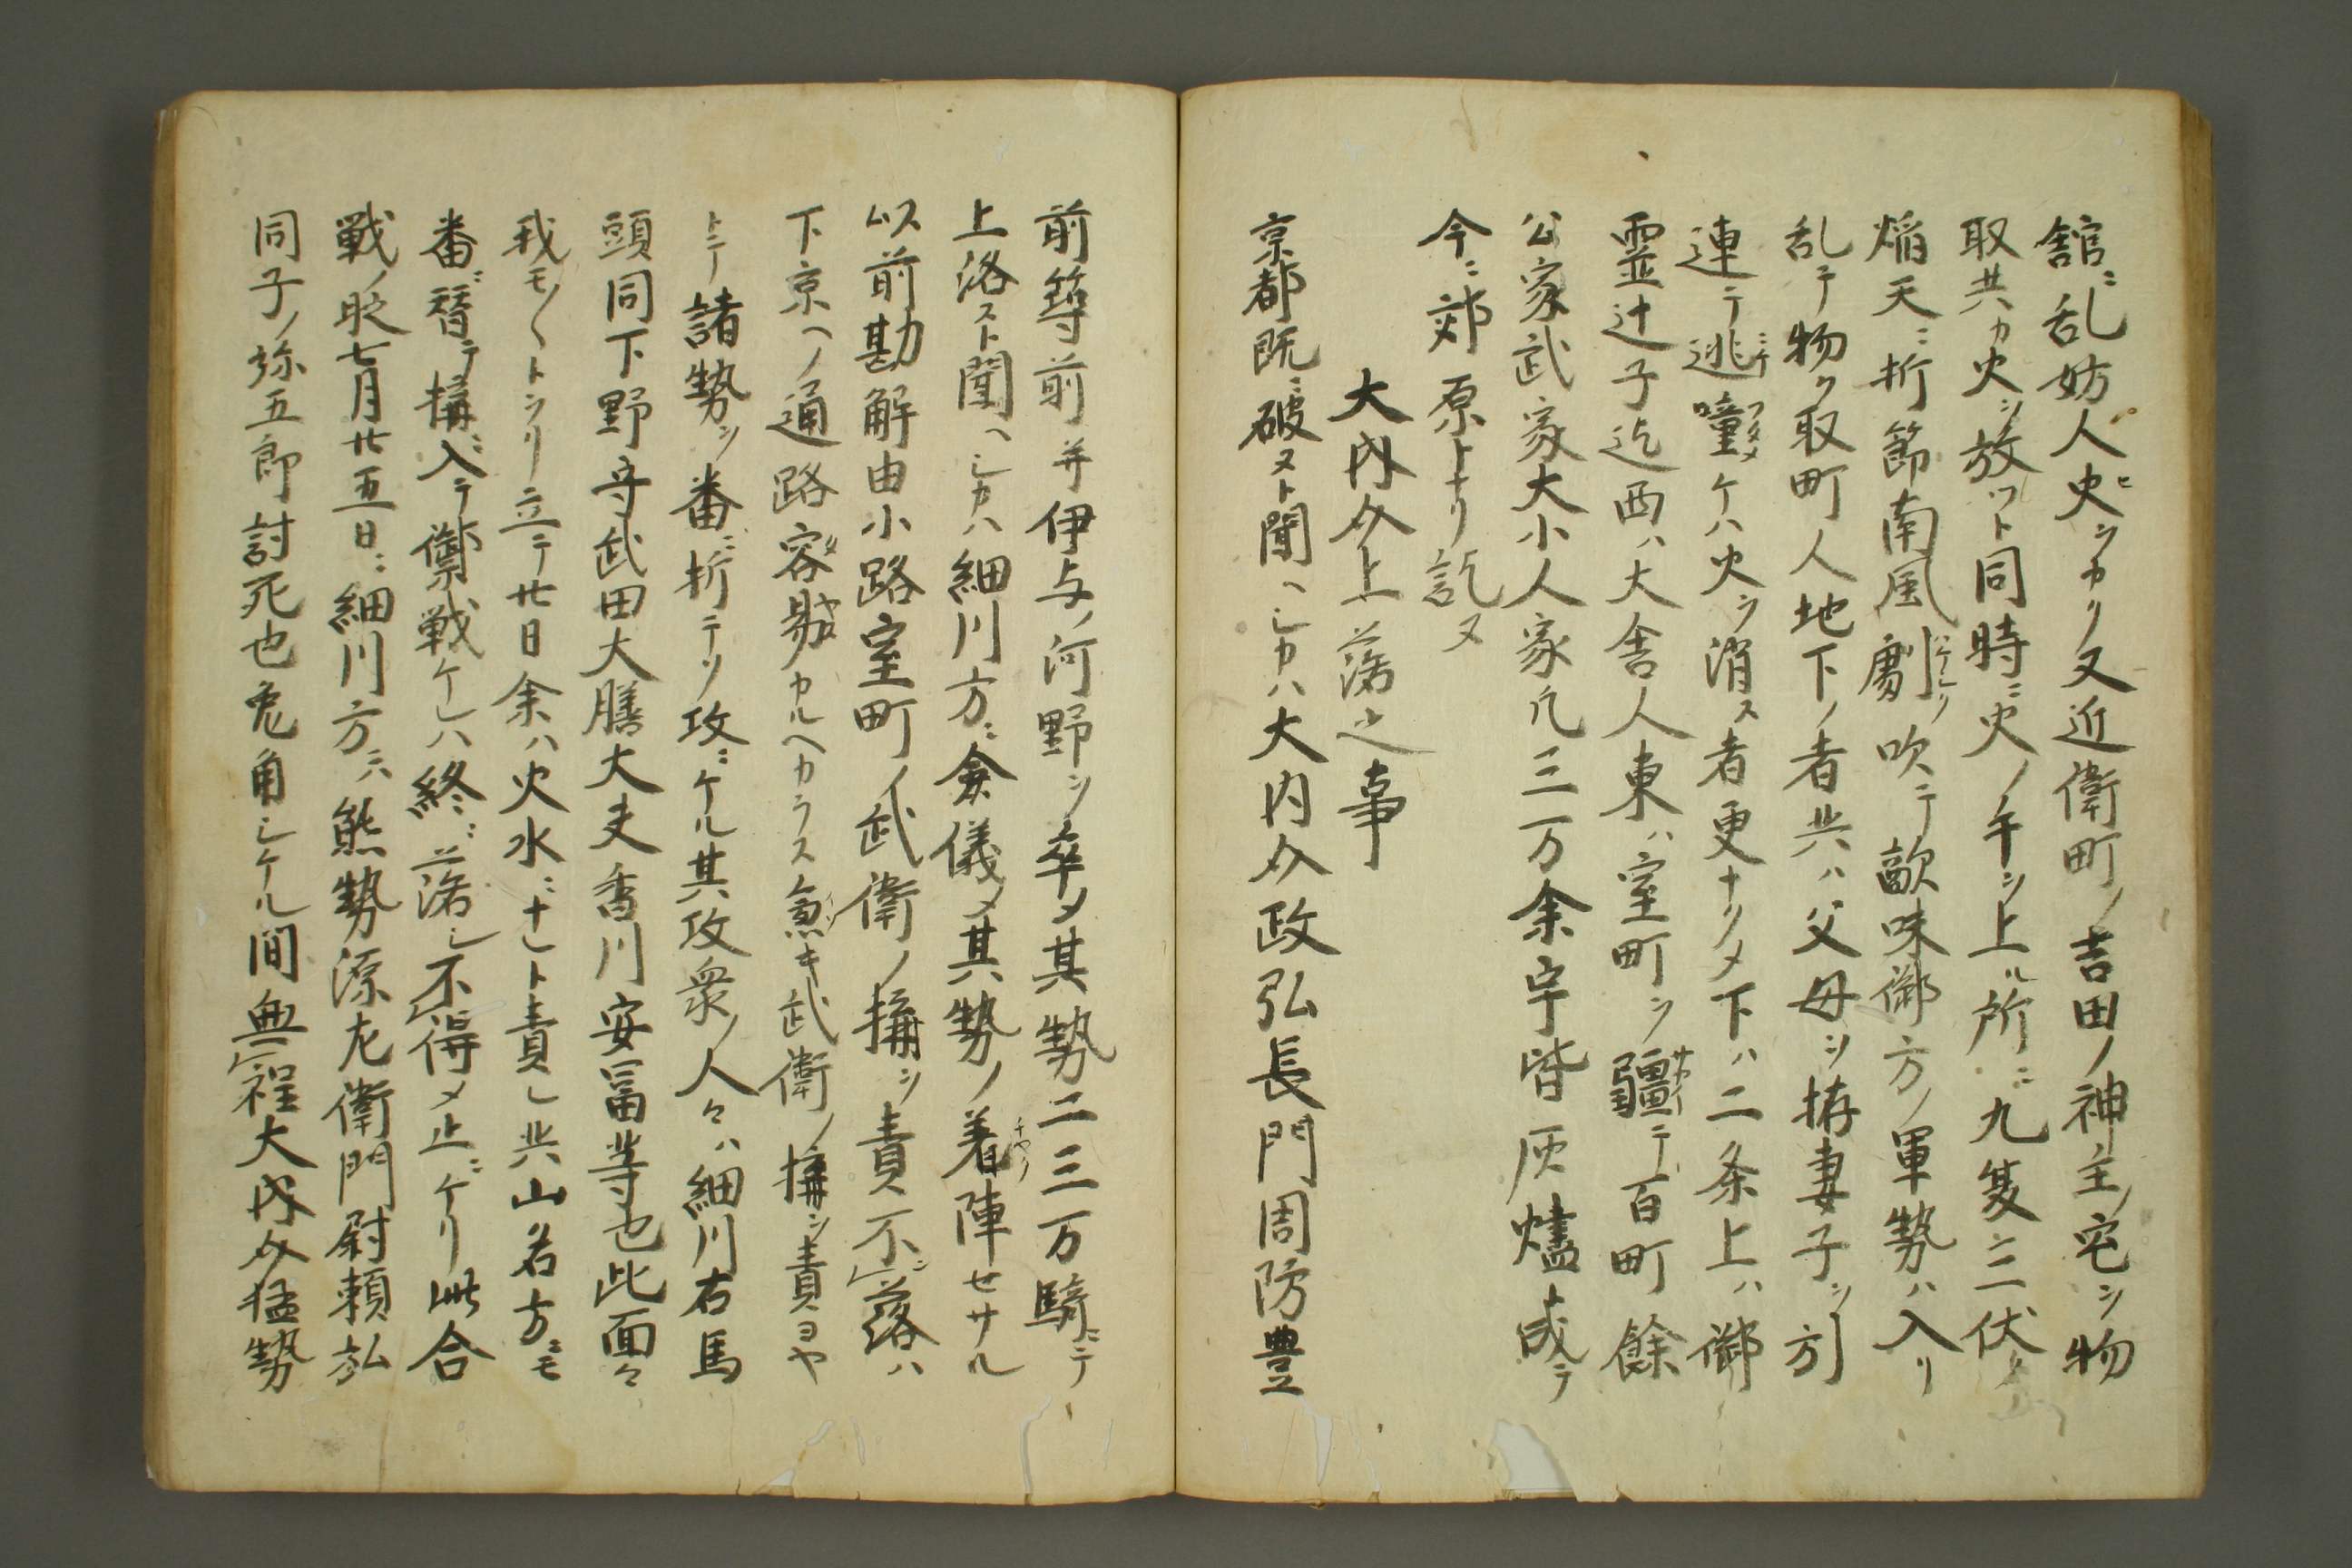 舘ニ乱妨人火ヲカリ又近衛町ノ吉田ノ神主ノ宅ヲ物
取共カ火ヲ放ツト同時ニ火ノ手ヲ上ル所ニ九笈三伏ノ
焔天ニ折節南風劇ハケシク吹テ敵味御方ノ軍勢ハ入リ
乱テ物ヲ取町人地下ノ者共ハ父母ヲ拵妻子ヲ引
連テ逃ニケ噇フタメケハ火ヲ消ス者更ナクメ下ハ二条上ハ御
霊辻子迄西ハ大舎人東ハ室町ヲ疆サカイテ百町餘
公家武家大小人家凡三万余宇皆灰燼ト成テ
今ニ郊原トナリ訖ヌ
大内介上落之事
京都既ニ破ヌト聞ヘシカハ大内介政弘長門周防豊
前筑前并伊与ノ河野ヲ卒メ其勢二三万騎ニテ
上洛スト聞ヘシカハ細川方ニ僉儀メ其勢ノ着チヤク陣セサル
以前勘解由小路室町ノ武衛ノ搆ヲ責不落ハ
下京ヘノ通路容易タヤスカルヘカラス急キ武衛ノ搆ヲ責ヨヤ
トテ諸勢ヲ番ニ折テソ攻ニケル其攻衆ノ人々ハ細川右馬
頭同下野守武田大膳大夫香川安冨等也此面々
我モ〱トツリ立テ廿日余ハ火水ニナレト責レ共山名方ニモ
番ニ替テ搆ニ入テ禦戦ケレハ終ニ落シ不得メ止ニケリ此合
戦ノ眤七月廿五日ニ細川方ニハ熊勢源左衛門尉頼弘
同子ノ弥五郎討死也兎角シケル間無程大内介猛勢